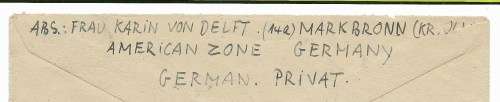 ABS.: FRAU KARIN VON DELFT. (14a) MARKBRONN (KR.
AMERICAN ZONE GERMANY
GERMAN. PRIVAT.